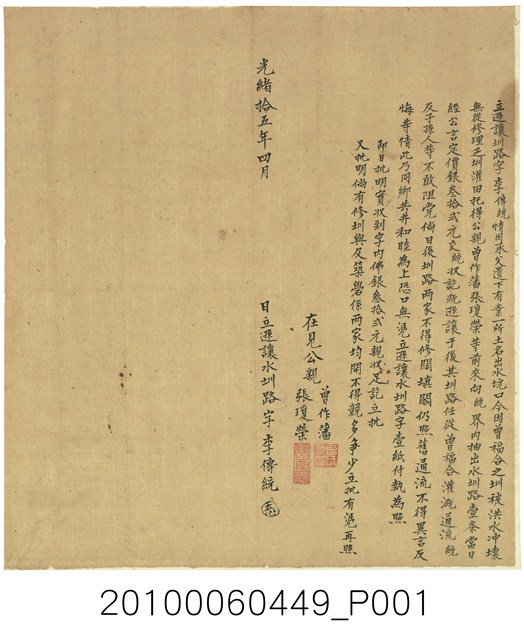 立遜讓圳路字李傳統情因承父遺下有業一所土名出水坑口今因曾福合之圳被洪水冲壞
無從修理之圳灌田托得公親曾作藩張瓊榮等前來向統界內抽出水圳路壹条當日
經公言定價銀叁拾弍元交統收訖統遜讓于後其圳路任從曾福合灌溉通流統
及子孫人等不敢阻党倘日後圳路兩家不得修闊填闊仍照舊通流不得異言反
悔等情此乃同鄉共井和睦為上恐口無憑立遜讓水圳路字壹紙付執為照
即日批明實收到字內佛銀叁拾弍元親收足訖立批
又批明倘有修圳與及築礐係兩家均開不得競多爭少立批有憑再照
在見公親 曾作藩
張瓊榮
光緒拾五年四月 日立遜讓水圳路字李傳統
20100060449_P001